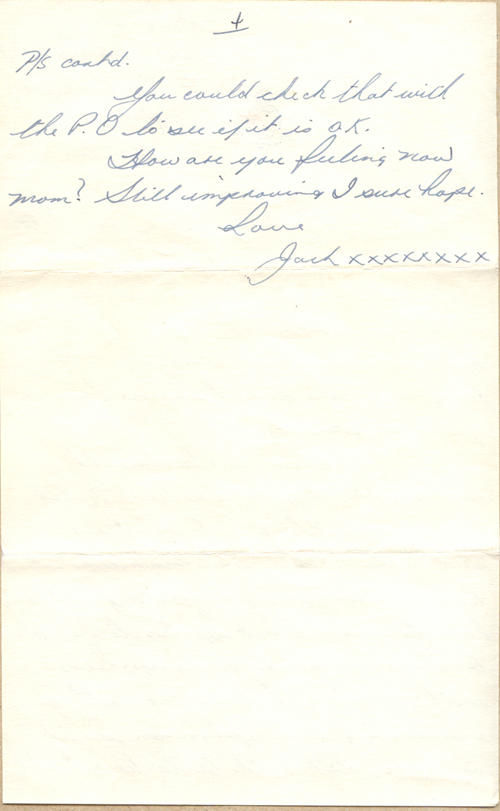 4
P/S contd.
You could check that with
the P.O to see if it is O.K.
How are you feeling now
mom? Still improving I sure hope.
Love
Jack xxxxxxxx